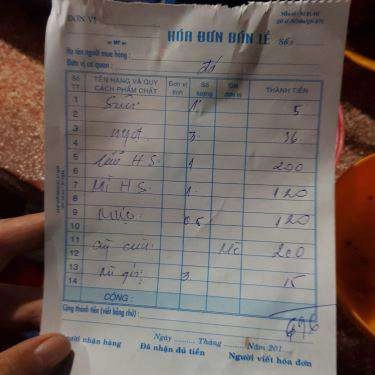 ĐƠN VỊ
HÓA ĐƠN BÁN LẺ Số:
Họ tên người mua hàng:
Đơn vị cơ quan:
Số TT TÊN HÀNG VÀ QUY CÁCH PHẨM CHẤT Đơn vị tính Số lượng Giá đơn vị THÀNH TIỀN
1
2 1 5
3
4 ngọt 3 36
5
6 lẩu H S 1 200
7 Mì H S 1 120
8
9 mực 0.5 120
10
11 200
12
13 3 15
14
CỘNG:
696
Cộng thành tiền (viết bằng chữ):
Ngày Tháng Năm 201
người nhận hàng Đã nhận đủ tiền Người viết hóa đơn